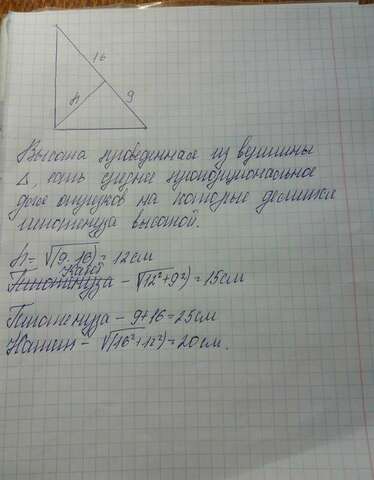 16
h
9
Высота проведенная из вершины
Δ, есть среднее пропорциональное
двух отрезков на которые делится
гипотенуза высотой.
h = √(9·16) = 12см
Катет
Гипотенуза – √(12²+9²) = 15см
Гипотенуза – 9+16=25см
Катет – √(16²+12²) = 20см.